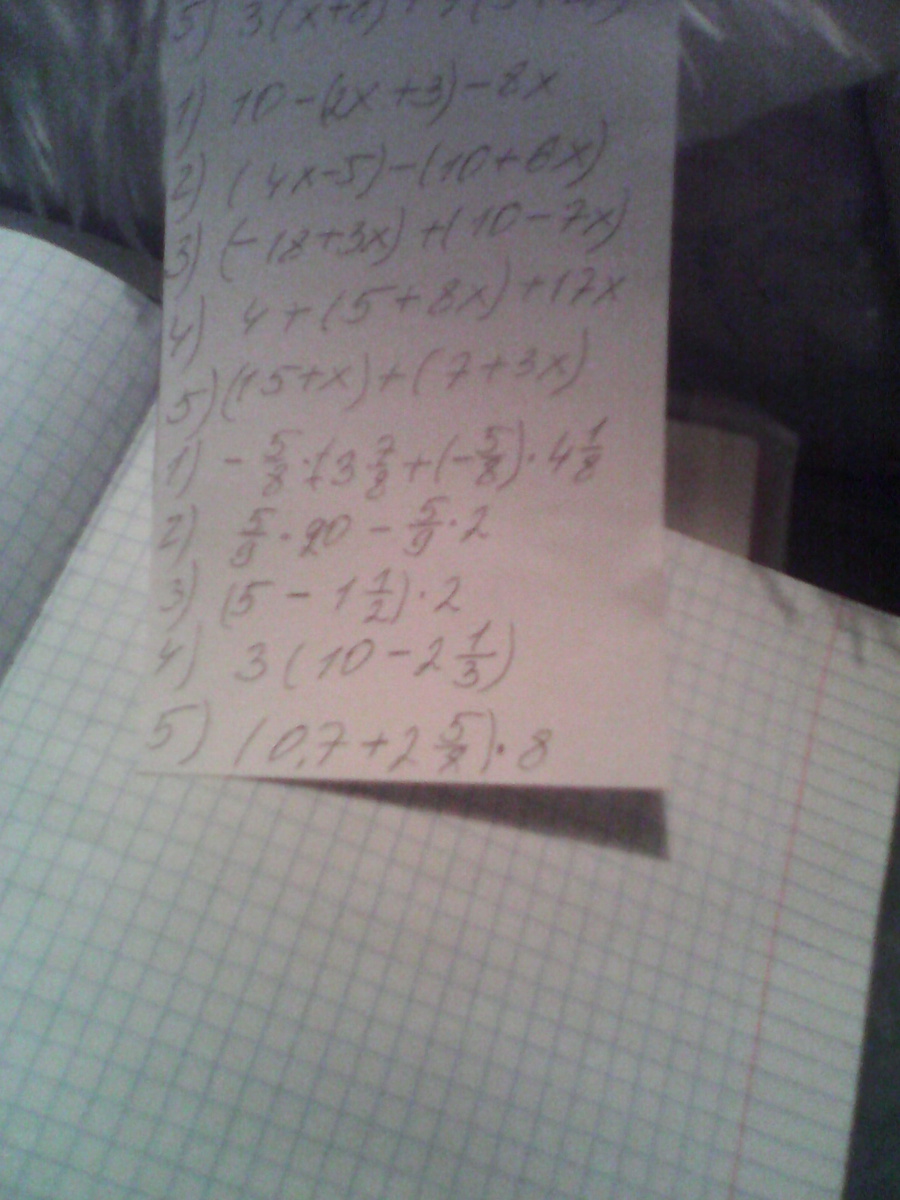 5) 3(x+8)
1) 10-(2x+3)-8x
2) (4x-5)-(10+6x)
3) (-18+3x)+(10-7x)
4) 4+(5+8x)+17x
5) (15+x)+(7+3x)
1) - 5/8 · 3 7/8 + (- 5/8) · 4 1/8
2) 5/9 · 20 - 5/9 · 2
3) (5 - 1 1/2) · 2
4) 3(10 - 2 1/3)
5) (0,7 + 2 5/8) · 8